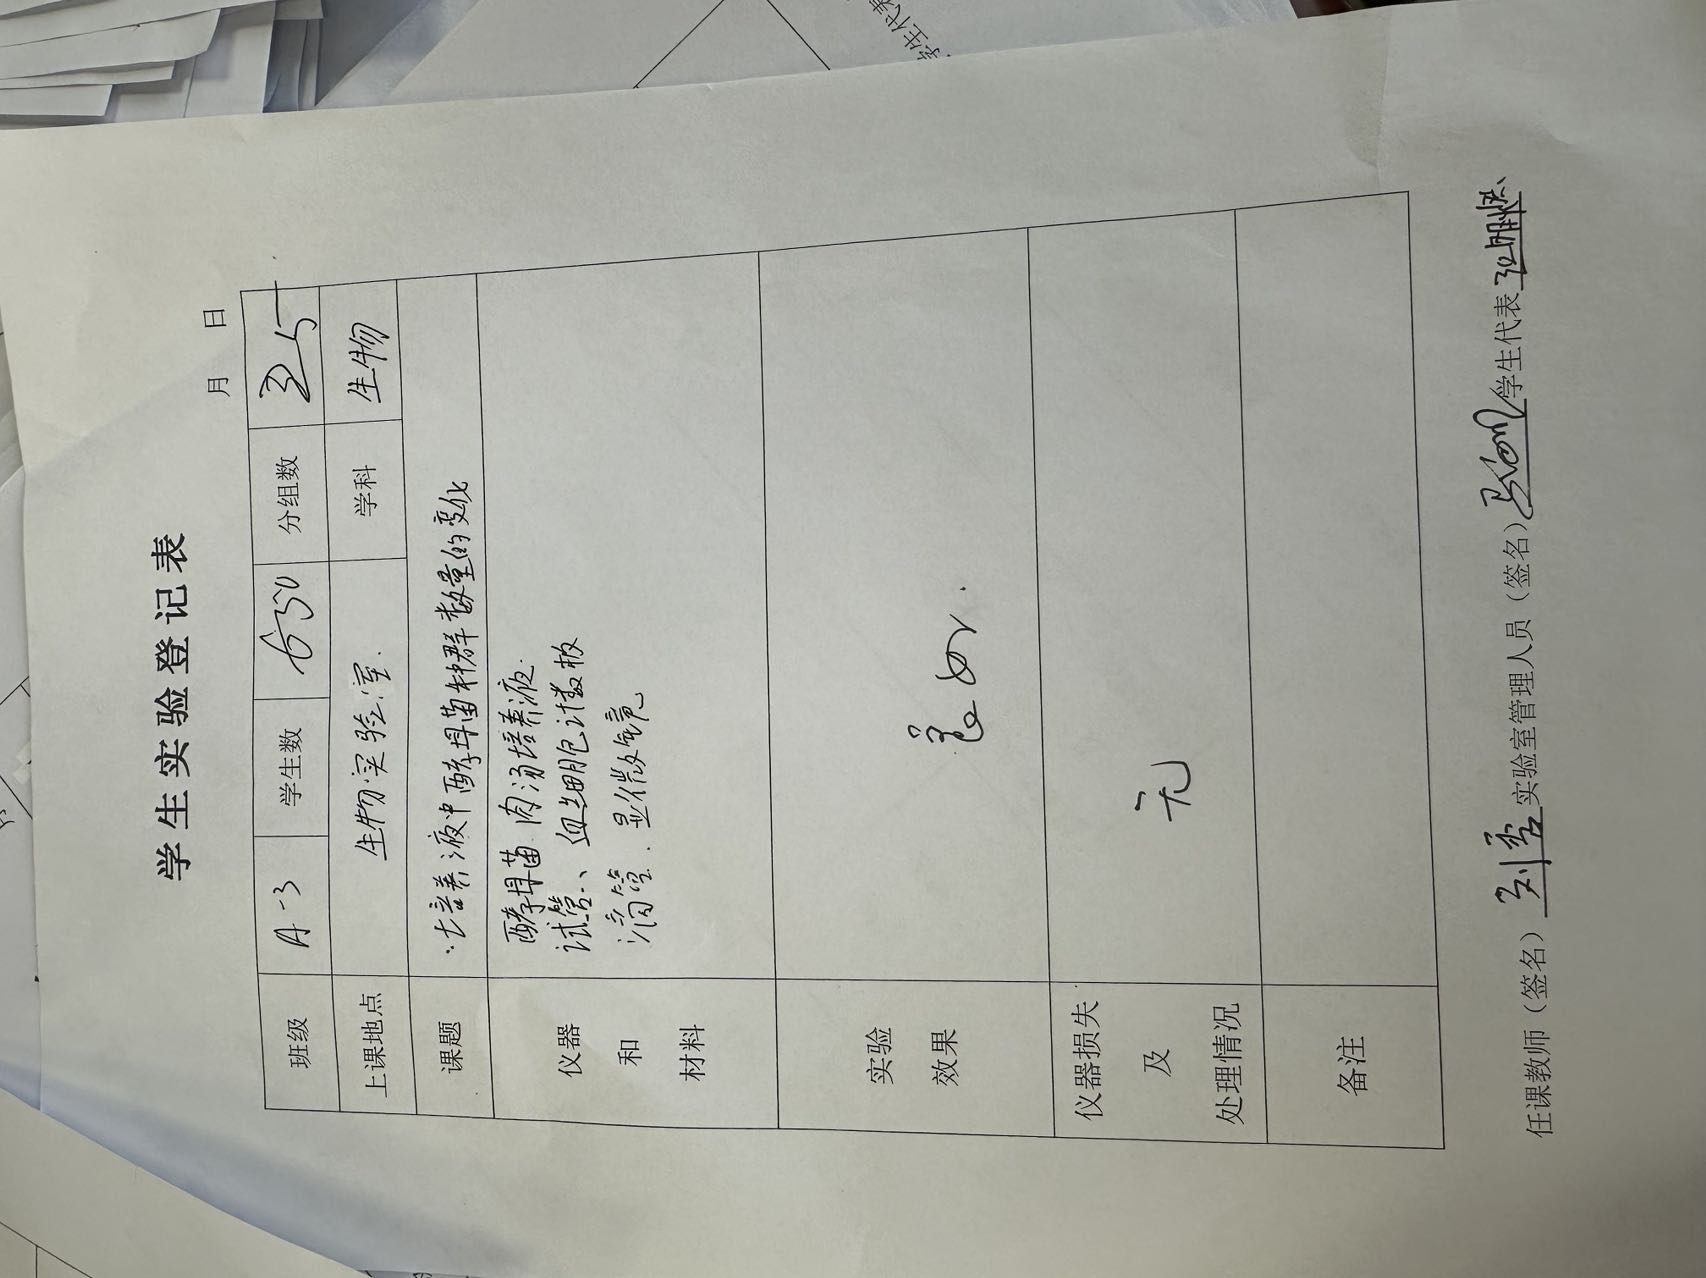 学生实验登记表
月 日
班级 A-3 学生数 分组数
上课地点 生物实验室. 学科 生物
课题 培养液中酵母菌种群数量的变化
仪器 酵母菌、肉汤培养液.
和 试管、血细胞计数板
材料 滴管. 显微镜
实验
效果 良好.
仪器损失
及 无
处理情况
备注
任课教师（签名） 实验室管理人员（签名） 学生代表
学生代表